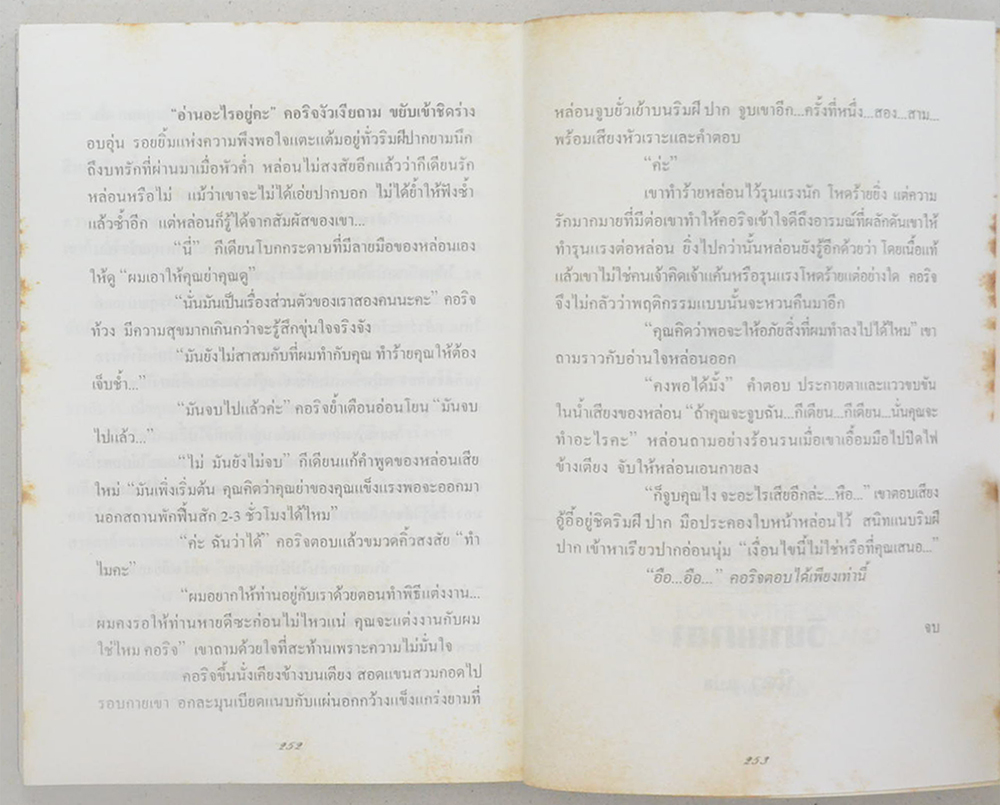 "อ่านอะไรอยู่คะ" คอริจงัวเงียถาม ขยับเข้าชิดร่าง
อบอุ่น รอยยิ้มแห่งความพึงพอใจแตะแต้มอยู่ทั่วริมฝีปากยามนึก
ถึงบทรักที่ผ่านมาเมื่อหัวค่ำ หล่อนไม่สงสัยอีกแล้วว่ากีเดียนรัก
หล่อนหรือไม่ แม้ว่าเขาจะไม่ได้เอ่ยปากบอก ไม่ได้ย้ำให้ฟังซ้ำ
แล้วซ้ำอีก แต่หล่อนก็รู้ได้จากสัมผัสของเขา...
“นี่” กีเดียนโบกกระดาษที่มีลายมือของหล่อนเอง
ให้ดู “ผมเอาให้คุณย่าคุณดู”
“นั่นมันเป็นเรื่องส่วนตัวของเราสองคนนะคะ” คอริจ
ท้วง มีความสุขมากเกินกว่าจะรู้สึกขุ่นใจจริงจัง
“มันยังไม่สาสมกับที่ผมทำกับคุณ ทำร้ายคุณให้ต้อง
เจ็บช้ำ...”
“มันจบไปแล้วค่ะ” คอริจย้ำเตือนอ่อนโยน “มันจบ
ไปแล้ว...”
“ไม่ มันยังไม่จบ” กีเดียนแก้คำพูดของหล่อนเสีย
ใหม่ “มันเพิ่งเริ่มต้น คุณคิดว่าคุณย่าของคุณแข็งแรงพอจะออกมา
นอกสถานพักฟื้นสัก 2-3 ชั่วโมงได้ไหม”
“ค่ะ ฉันว่าได้” คอริจตอบแล้วขมวดคิ้วสงสัย “ทำ
ไมคะ”
“ผมอยากให้ท่านอยู่กับเราด้วยตอนทำพิธีแต่งงาน...
ผมคงรอให้ท่านหายดีซะก่อนไม่ไหวแน่ คุณจะแต่งงานกับผม
ใช่ไหม คอริจ” เขาถามด้วยใจที่สะท้านเพราะความไม่มั่นใจ
คอริจขึ้นนั่งเคียงข้างบนเตียง สอดแขนสวมกอดไป
รอบกายเขา อกละมุนเบียดแนบกับแผ่นอกกว้างแข็งแกร่งยามที่
252
หล่อนจูบยั่วเย้าบนริมฝีปาก จูบเขาอีก...ครั้งที่หนึ่ง...สอง...สาม...
พร้อมเสียงหัวเราะและคำตอบ
“ค่ะ”
เขาทำร้ายหล่อนไว้รุนแรงนัก โหดร้ายยิ่ง แต่ความ
รักมากมายที่มีต่อเขาทำให้คอริจเข้าใจดีถึงอารมณ์ที่ผลักดันเขาให้
ทำรุนแรงต่อหล่อน ยิ่งไปกว่านั้นหล่อนยังรู้อีกด้วยว่า โดยเนื้อแท้
แล้วเขาไม่ใช่คนเจ้าคิดเจ้าแค้นหรือรุนแรงโหดร้ายแต่อย่างใด คอริจ
จึงไม่กลัวว่าพฤติกรรมแบบนั้นจะหวนคืนมาอีก
“คุณคิดว่าพอจะให้อภัยสิ่งที่ผมทำลงไปได้ไหม” เขา
ถามราวกับอ่านใจหล่อนออก
“คงพอได้มั้ง” คำตอบ ประกายตาและแววขบขัน
ในน้ำเสียงของหล่อน “ถ้าคุณจะจูบฉัน...กีเดียน...กีเดียน...นั่นคุณจะ
ทำอะไรคะ” หล่อนถามอย่างร้อนรนเมื่อเขาเอื้อมมือไปปิดไฟ
ข้างเตียง จับให้หล่อนเอนกายลง
“ก็จูบคุณไง จะอะไรเสียอีกล่ะ...หือ...” เขาตอบเสียง
อู้อี้อยู่ชิดริมฝีปาก มือประคองใบหน้าหล่อนไว้ สนิทแนบริมฝี
ปาก เข้าหาเรียวปากอ่อนนุ่ม “เงื่อนไขนี้ไม่ใช่หรือที่คุณเสนอ...”
“อือ...อือ...” คอริจตอบได้เพียงเท่านี้
จบ
253